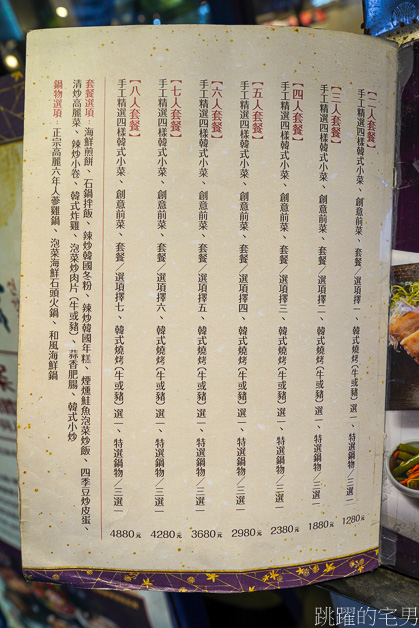 【二人套餐】
手工精選四樣韓式小菜、創意前菜、套餐／選項擇一、韓式燒烤(牛或豬)選一、特選鍋物／三選一 1280元
【三人套餐】
手工精選四樣韓式小菜、創意前菜、套餐／選項擇二、韓式燒烤(牛或豬)選一、特選鍋物／三選一 1880元
【四人套餐】
手工精選四樣韓式小菜、創意前菜、套餐／選項擇三、韓式燒烤(牛或豬)選一、特選鍋物／三選一 2380元
【五人套餐】
手工精選四樣韓式小菜、創意前菜、套餐／選項擇四、韓式燒烤(牛或豬)選一、特選鍋物／三選一 2980元
【六人套餐】
手工精選四樣韓式小菜、創意前菜、套餐／選項擇五、韓式燒烤(牛或豬)選一、特選鍋物／三選一 3680元
【七人套餐】
手工精選四樣韓式小菜、創意前菜、套餐／選項擇六、韓式燒烤(牛或豬)選一、特選鍋物／三選一 4280元
【八人套餐】
手工精選四樣韓式小菜、創意前菜、套餐／選項擇七、韓式燒烤(牛或豬)選一、特選鍋物／三選一 4880元
套餐選項：海鮮煎餅、石鍋拌飯、辣炒韓國冬粉、辣炒韓國年糕、煙燻鮭魚泡菜炒飯、四季豆炒皮蛋、
清炒高麗菜、辣炒小卷、韓式炸雞、泡菜炒肉片(牛或豬)、蒜香肥腸、韓式小炒
鍋物選項：正宗高麗六年人蔘雞鍋、泡菜海鮮石頭火鍋、和風海鮮鍋
跳躍的宅男